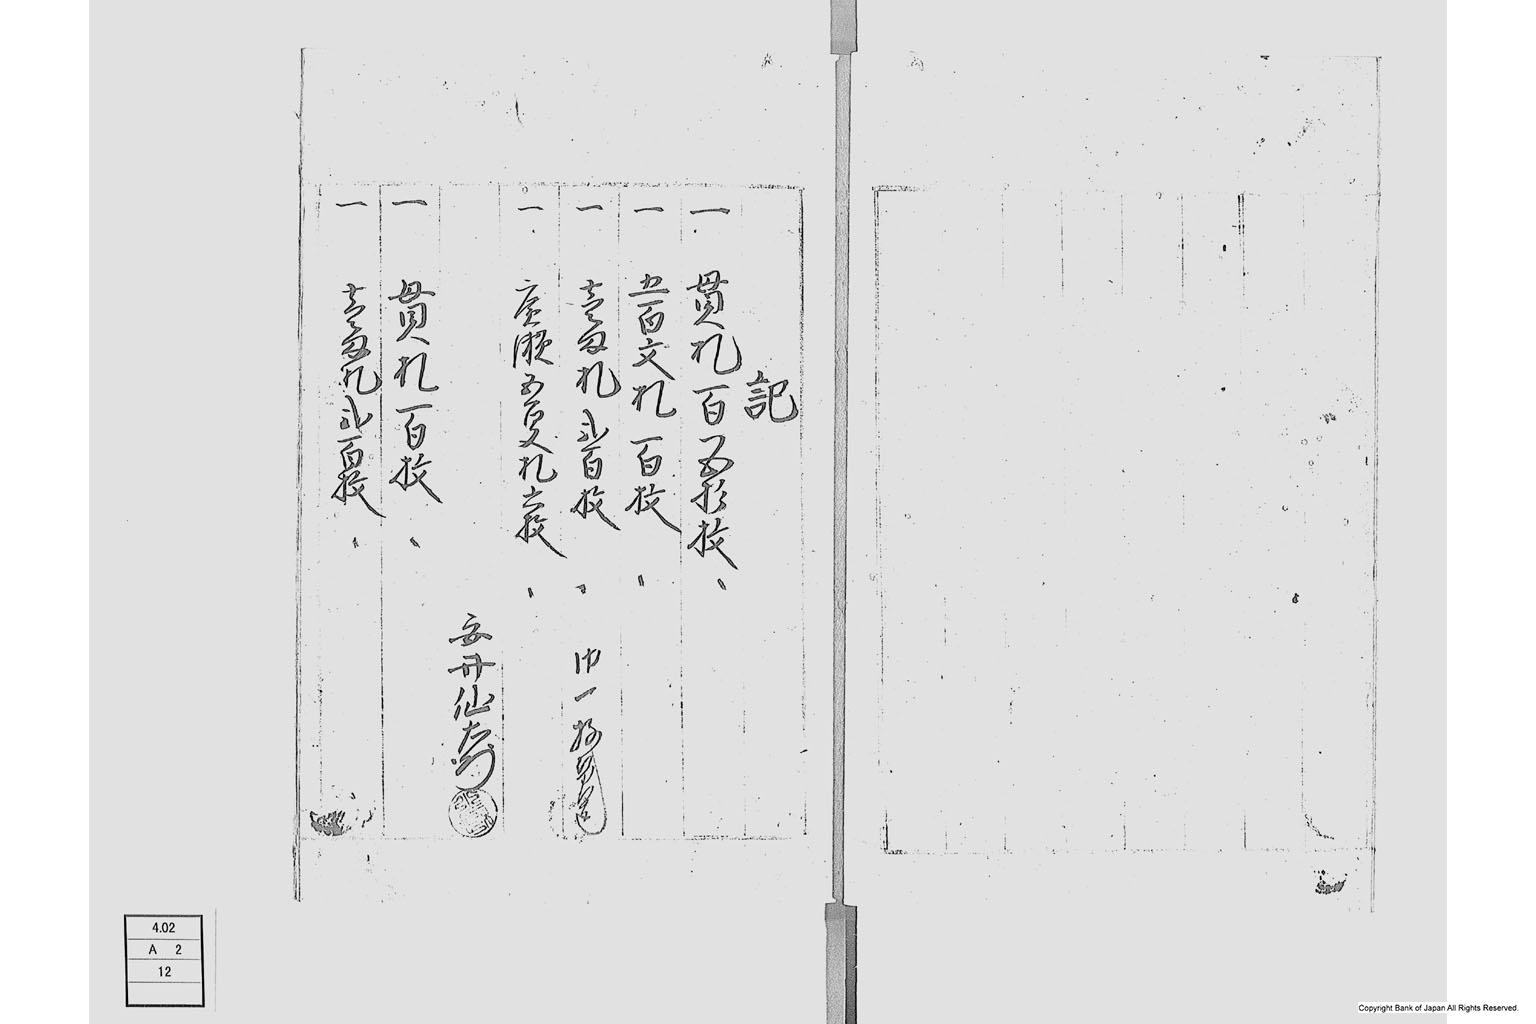 記
一 貫札百五拾枚
一 五百文札百枚
一 壱匁札弐百枚
一 札六枚
安井仙左衛門
一 貫札一百枚
一 壱匁札弐百枚
4.02
A 2
12
Copyright Bank of Japan All Rights Reserved.